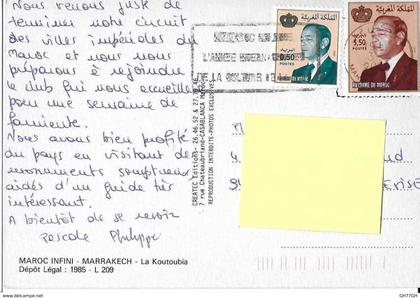 Nous venons juste de
terminer notre circuit
des villes impériales du
Maroc et nous nous
préparons à rejoindre
le club qui nous accueille
pour une semaine de
farniente.
Nous avons bien profité
du pays en visitant des
monuments somptueux
aidés d'un guide très
intéressant.
A bientôt de se revoir
Pascale Philippe
MAROC INFINI - MARRAKECH - La Koutoubia
Dépôt Légal : 1985 - L 209
CREATEC Editions - 26.46.52 & 27
7 rue Chateaubriand-CASABLANCA
REPRODUCTION INTERDITE-PHOTOS EXCLUSIVES
L'ANNEE INTERN
DE LA CULTURE
المملكة المغربية
0,50
POSTES
ROYAUME DU MAROC
المملكة المغربية
5,50
POSTES
ROYAUME DU MAROC
CH77GH